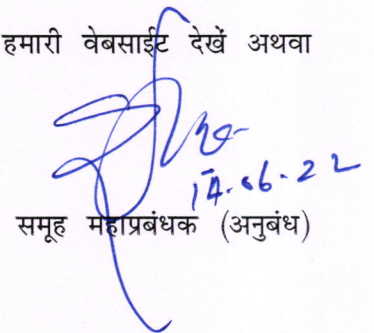 हमारी वेबसाईट देखें अथवा
14.06.22
समूह महाप्रबंधक (अनुबंध)